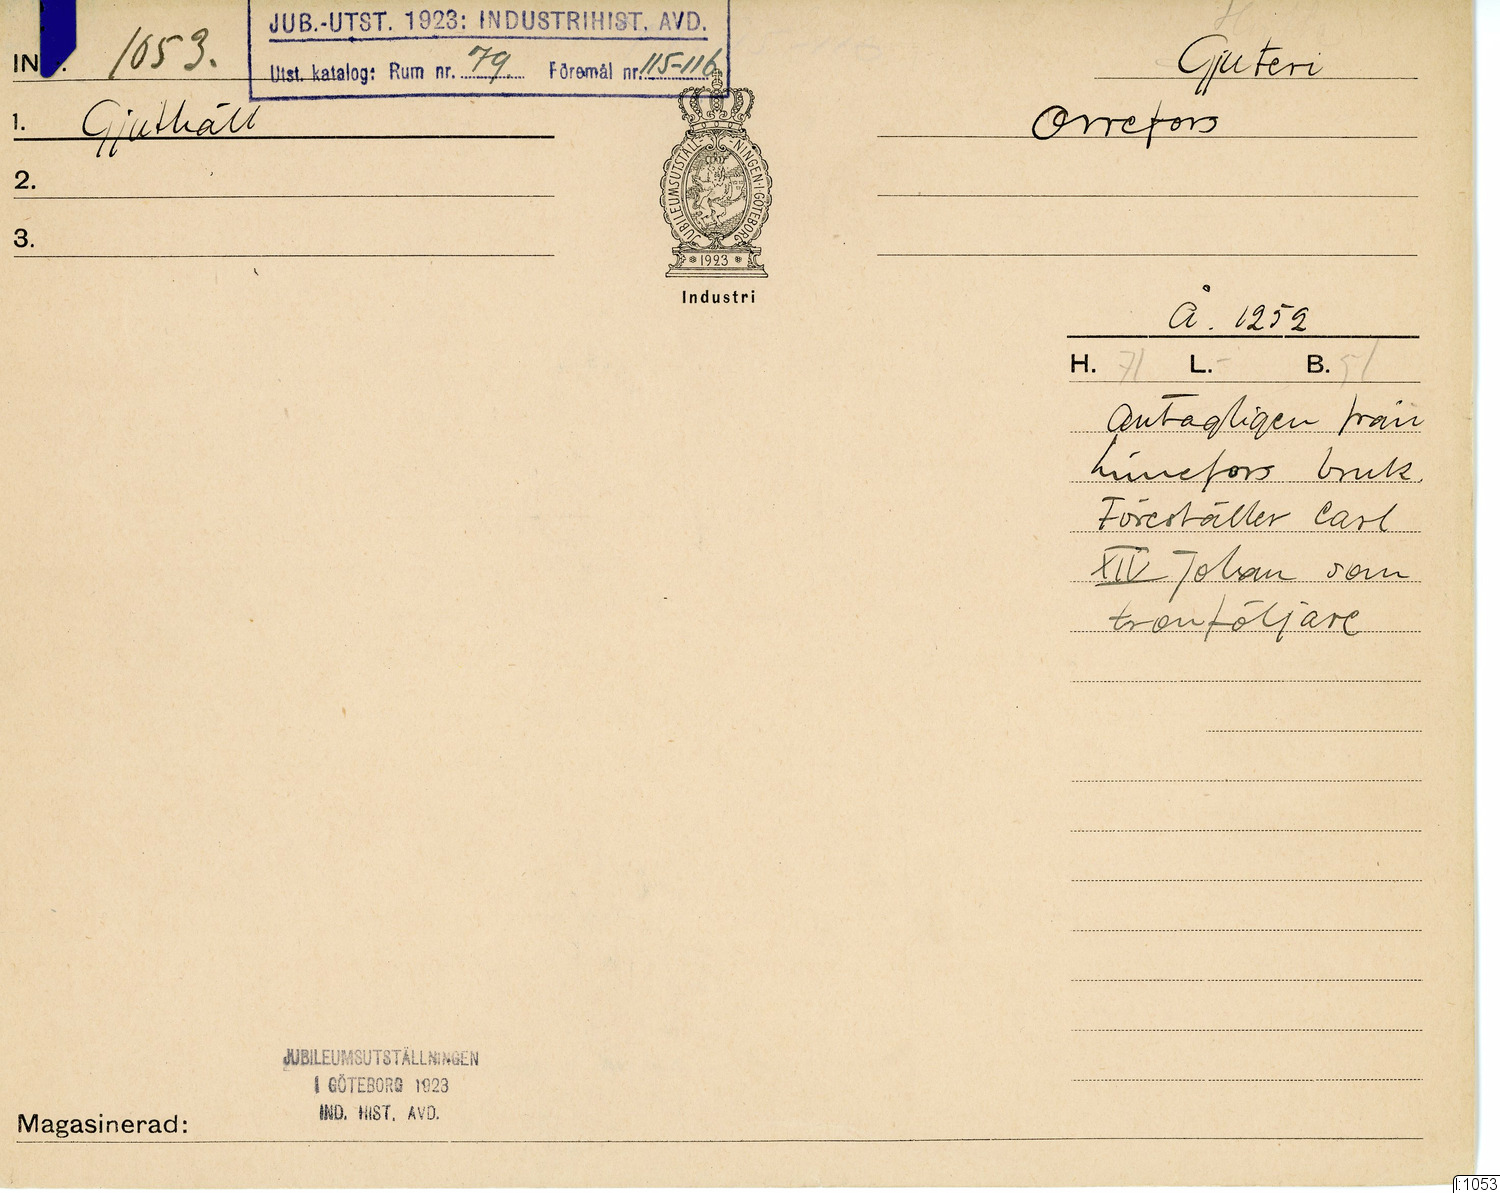 JUB.-UTST. 1923: INDUSTRIHIST. AVD.
Utst. katalog: Rum nr. 79. Föremål nr. 115-116
IN 1053.
1. Gjuthäll
2.
3.
Gjuteri
Orrefors
JUBILEUMSUTSTÄLL-NINGEN·I·GÖTEBORG
1923
Industri
Å. 1252
H. 71 L. - B. 51
Antagligen från
Linnefors bruk.
Föreställer Carl
XIV Johan som
tronföljare
JUBILEUMSUTSTÄLLNINGEN
I GÖTEBORG 1923
IND. HIST. AVD.
Magasinerad:
I:1053